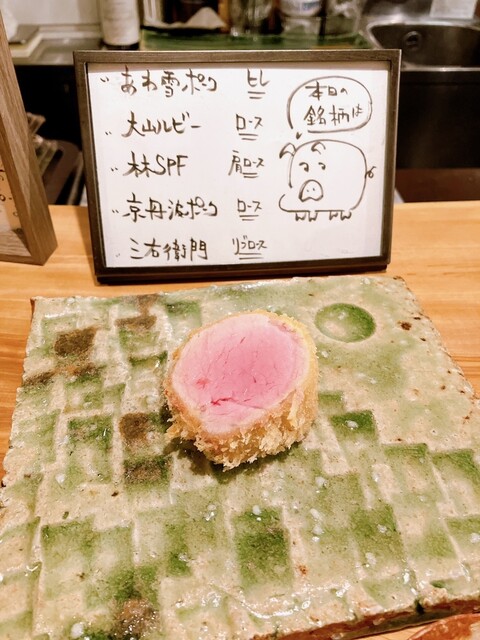 本日の
銘柄は
あわ雪ポーク ヒレ
大山ルビー ロース
林SPF 肩ロース
京丹波ポーク ロース
三右衛門 リブロース